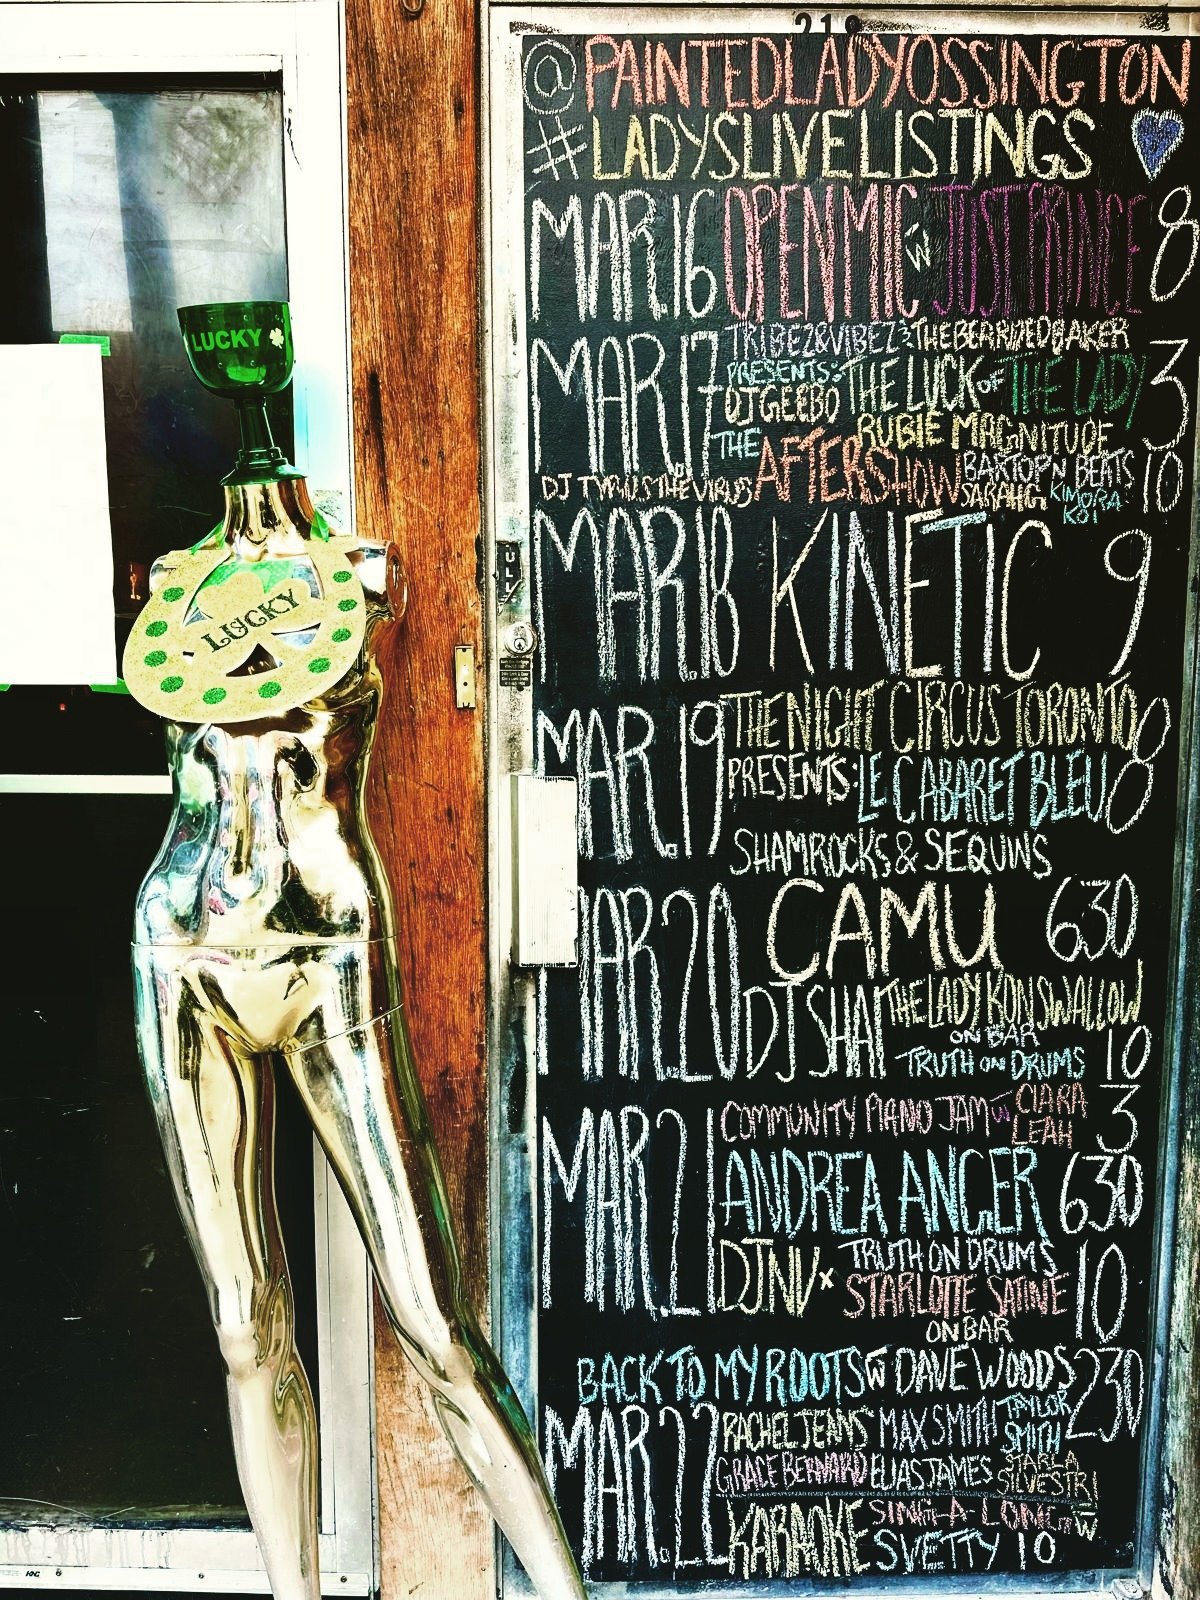 219
@PAINTEDLADYOSSINGTON
#LADYSLIVELISTINGS
MAR.16 OPEN MIC W JUST PRINCE 8
MAR.17 TRIBEZ&VIBEZ & THEBEARDEDBAKER
PRESENTS: THE LUCK OF THE LADY 3
DJ GEEBO
THE AFTERSHOW RUBIE MAGNITUDE
DJ TYRUSTHEVIRUS BARTOPN BEATS 10
SARAHG KIMORA
KOI
MAR.18 KINETIC 9
MAR.19 THE NIGHT CIRCUS TORONTO
PRESENTS: LE CABARET BLEU 8
SHAMROCKS & SEQUINS
MAR.20 CAMU 630
DJ SHAI THELADY KONSWALLOW
ON BAR
TRUTH ON DRUMS 10
MAR.21 COMMUNITY PIANO JAM W CIARA 3
LEAH
ANDREA ANGER 630
DJNV X TRUTH ON DRUMS 10
STARLOTTE SATINE
ON BAR
BACK TO MY ROOTS W DAVE WOODS 230
MAR.22 RACHEL JEANS MAX SMITH TAYLOR
SMITH
GRACE BERNARD ELIAS JAMES STARLA
SILVESTRI
KARAOKE SING-A-LONG W
SVETTY 10
LUCKY
LUCKY